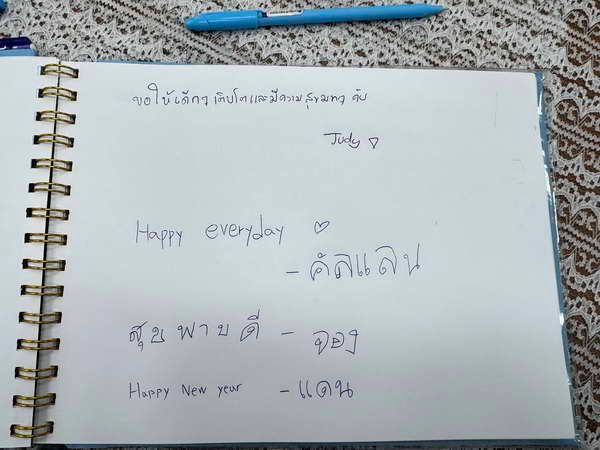 ขอให้เด็กๆ เติบโตและมีความสุขมากๆ ค่ะ
Judy
Happy everyday ♡
- คัลแลน
สุขพาบดี - จอง
Happy New year - แดน